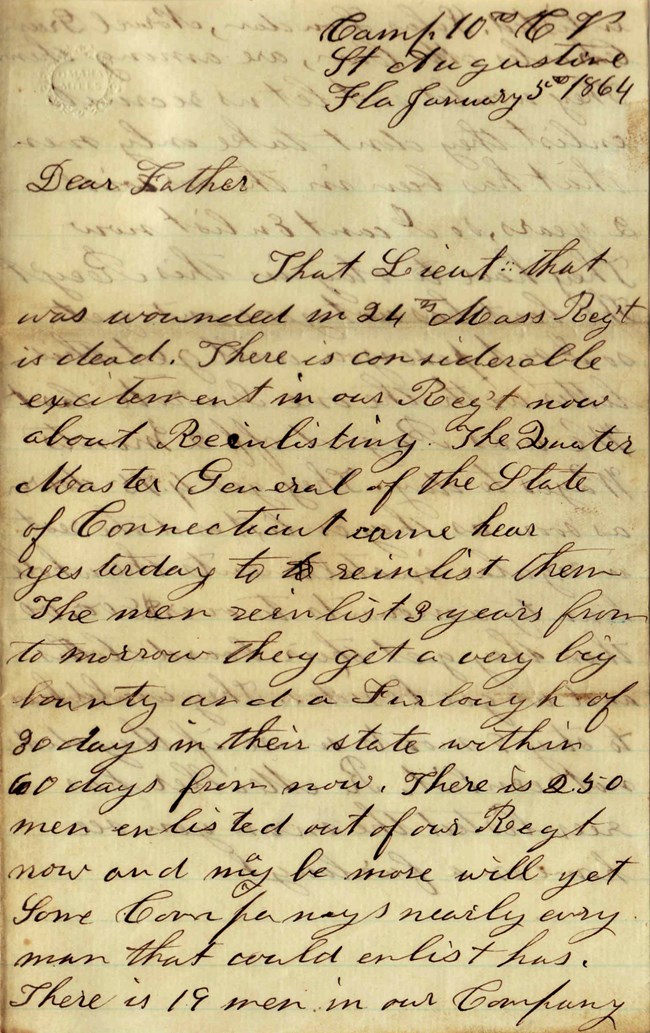 Camp 10th C V
St Augustine
Fla January 5th 1864
Dear Father
That Lieut. that
was wounded in 24th Mass Reg't
is dead. There is considerable
excitement in our Reg't now
about Reinlisting. The Quater
Master General of the State
of Connecticut came hear
yesterday to reinlist them
The men reinlist 3 years from
to morrow they get a very big
bounty and a Furlough of
30 days in their state within
60 days from now. There is 250
men enlisted out of our Regt
now and may be more will yet
Some Companys nearly evry
man that could enlist has.
There is 19 men in our Company